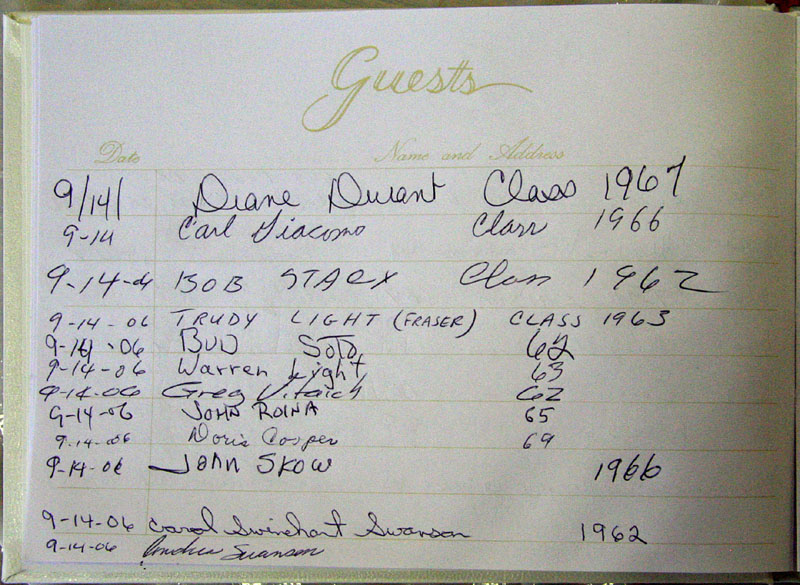 Guests
Date Name and Address
9/14/ Diane Durant Class 1967
9-14 Carl Giacomo Class 1966
9-14-06 BOB STARX Class 1962
9-14-06 TRUDY LIGHT (FRASER) CLASS 1963
9-14-06 BUD SOTO 62
9-14-06 Warren Light 63
9-14-06 Greg 62
9-14-06 JOHN ROINA 65
9-14-06 Doris Cooper 69
9-14-06 JOHN SKOW 1966
9-14-06 Carol Swinehart Swanson 1962
9-14-06 Swanson